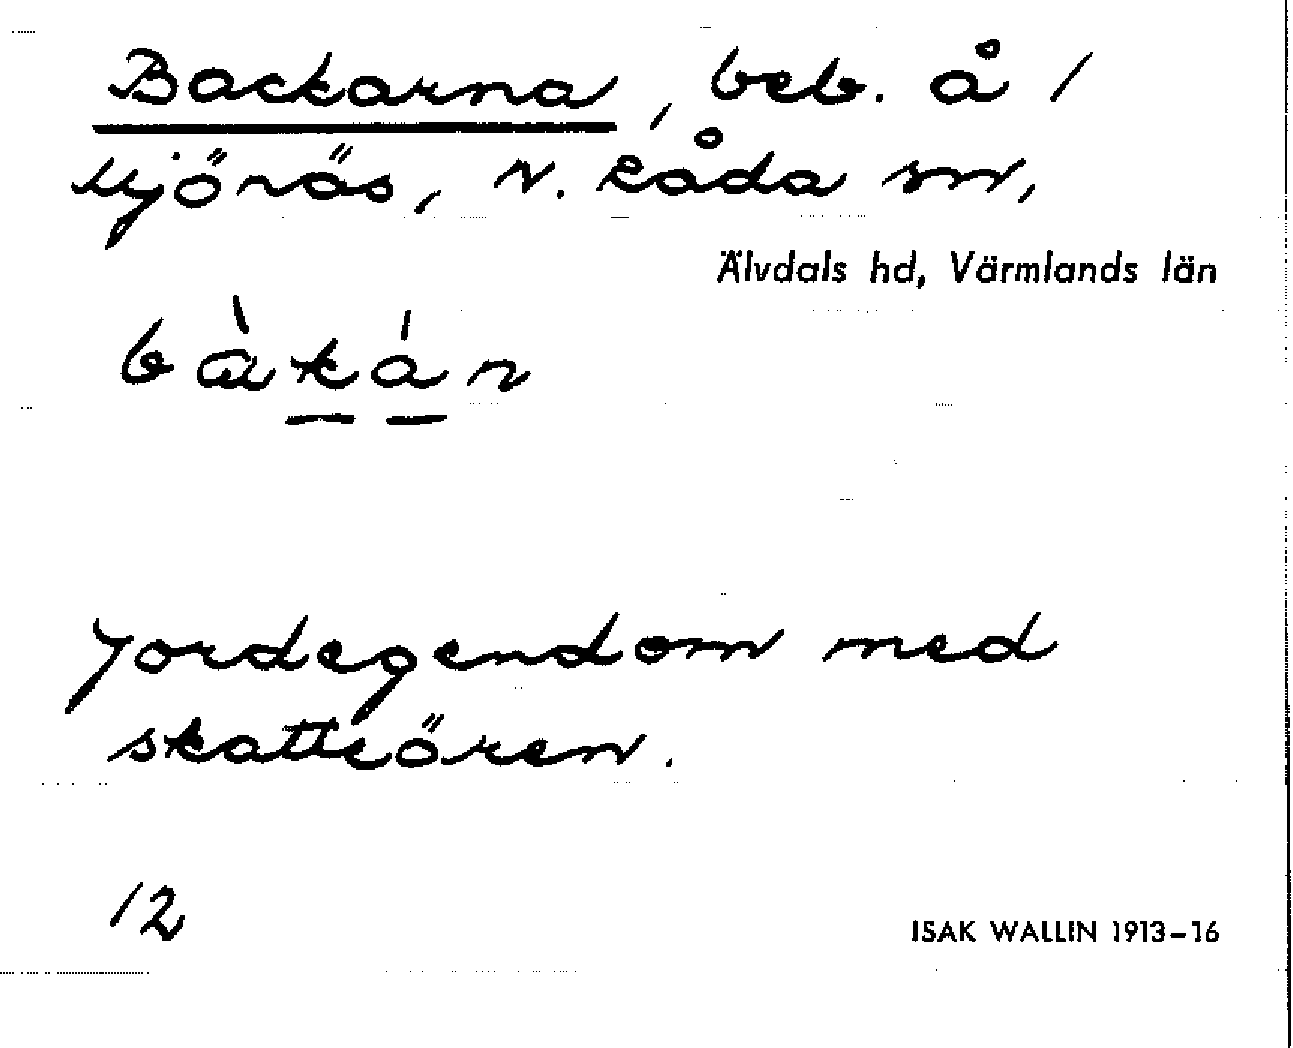 Backarna, beb. å 1
Mjönäs, N. Råda sn,
Älvdals hd, Värmlands län
bàkán
Jordegendom med
skatteören.
12
ISAK WALLIN 1913–16